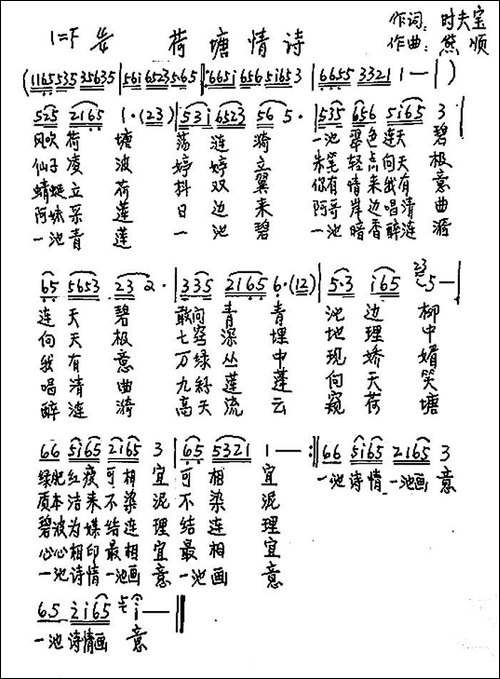 1=F 2/4 荷塘情诗 作词: 时夫宝
作曲: 熊顺
(1165 535 35635 | 5 6 1 6523 5·65 | 6651 656 5165 3 | 6655 3321 1 — )
525 2165 1·(23) | 531 6523 56 5· | 535 656 5165 3
风吹荷塘 荡涟漪 一池翠色连天碧
仙子凌波 婷婷立 朱笔轻点向天极
蜻蜓立荷 抖双翼 你有情来我有意
阿妹采莲 日边来 阿哥岸边唱清曲
一池青莲 一池碧 一池暗香醉涟漪
65 5653 23 2· | 335 2165 6·(12) | 5·3 165 5 —
连天碧 敢问青青 池边柳
向天极 七窍深埋 地里中
我有意 万绿丛中 现娇媚
唱清曲 九籽莲蓬 向天笑
醉涟漪 高天流云 窥荷塘
66 5165 2165 3 | 65 5321 1 — :‖ 66 5165 2165 3
绿肥红瘦可相宜 可相宜 一池诗情一池画意
质本洁来不染泥 不染泥
碧波为媒结连理 结连理
心心相印最相宜 最相宜
一池诗情一池画意 一池画意
65 2165 1 — ‖
一池诗情画意